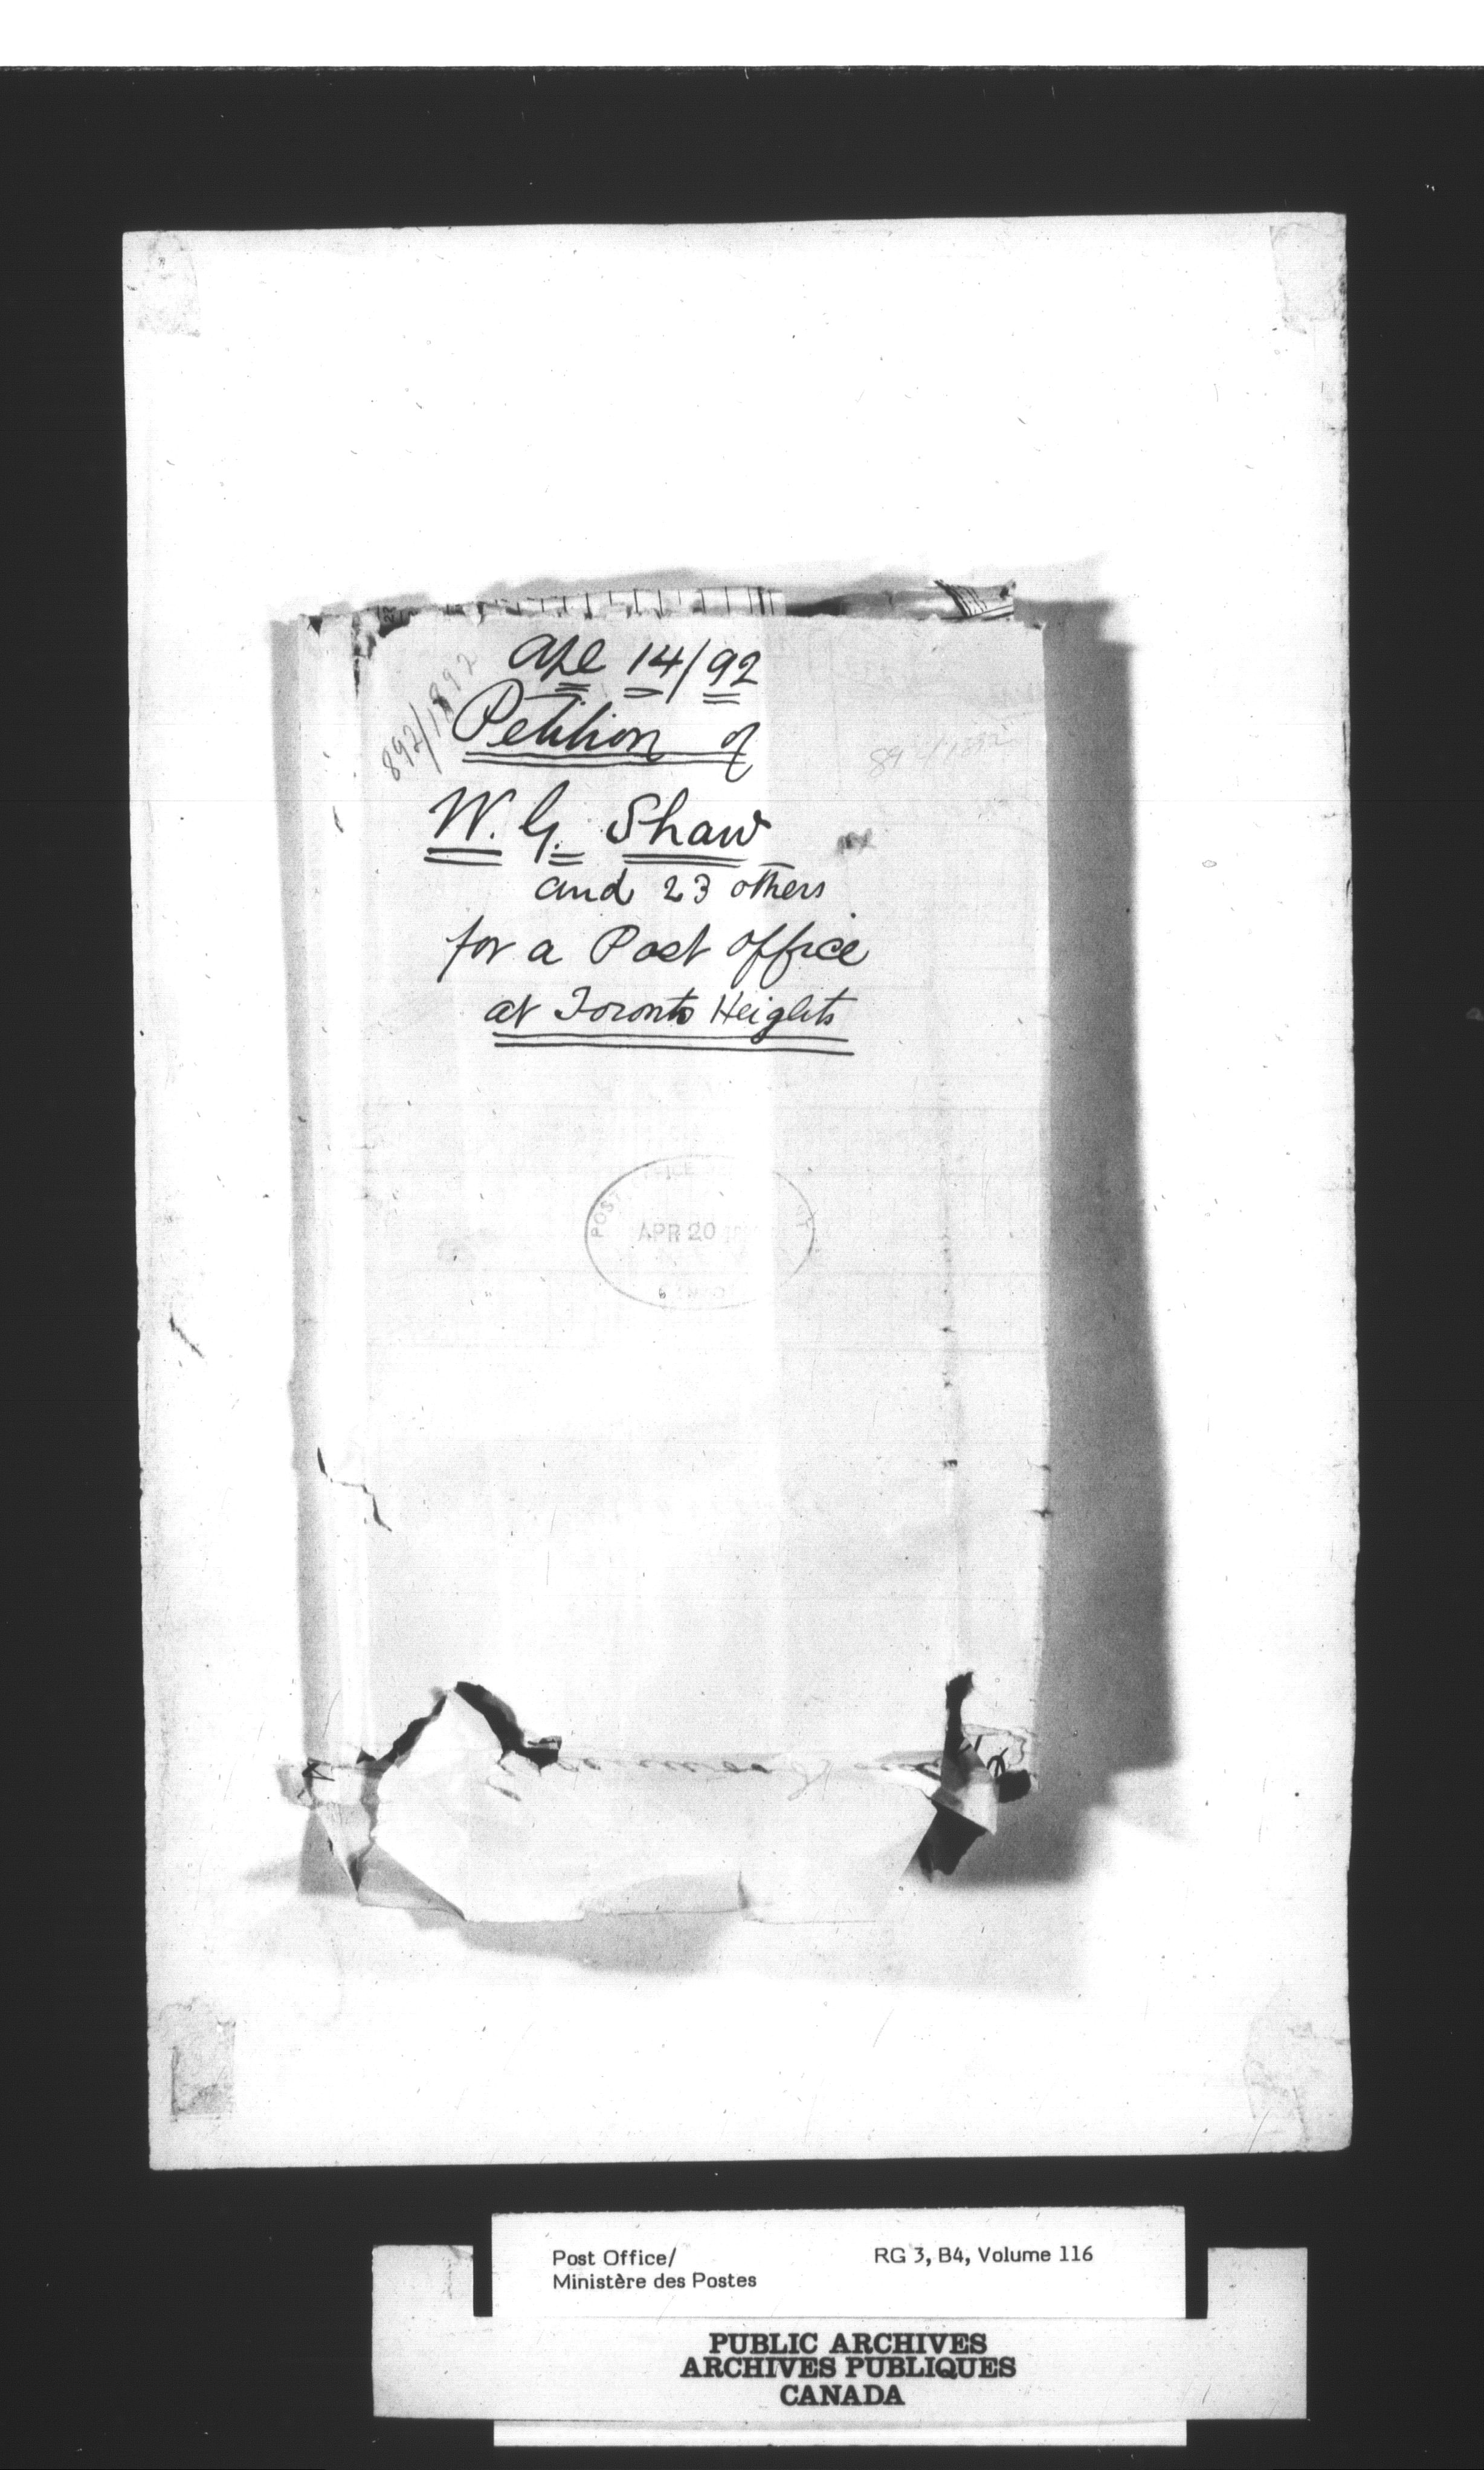 Apl 14/92
892/1892
Petition of
892/1892
W. G. Shaw
and 23 others
for a Post Office
at Toronto Heights
POST
APR 20
Post Office/ RG 3, B4, Volume 116
Ministère des Postes
PUBLIC ARCHIVES
ARCHIVES PUBLIQUES
CANADA